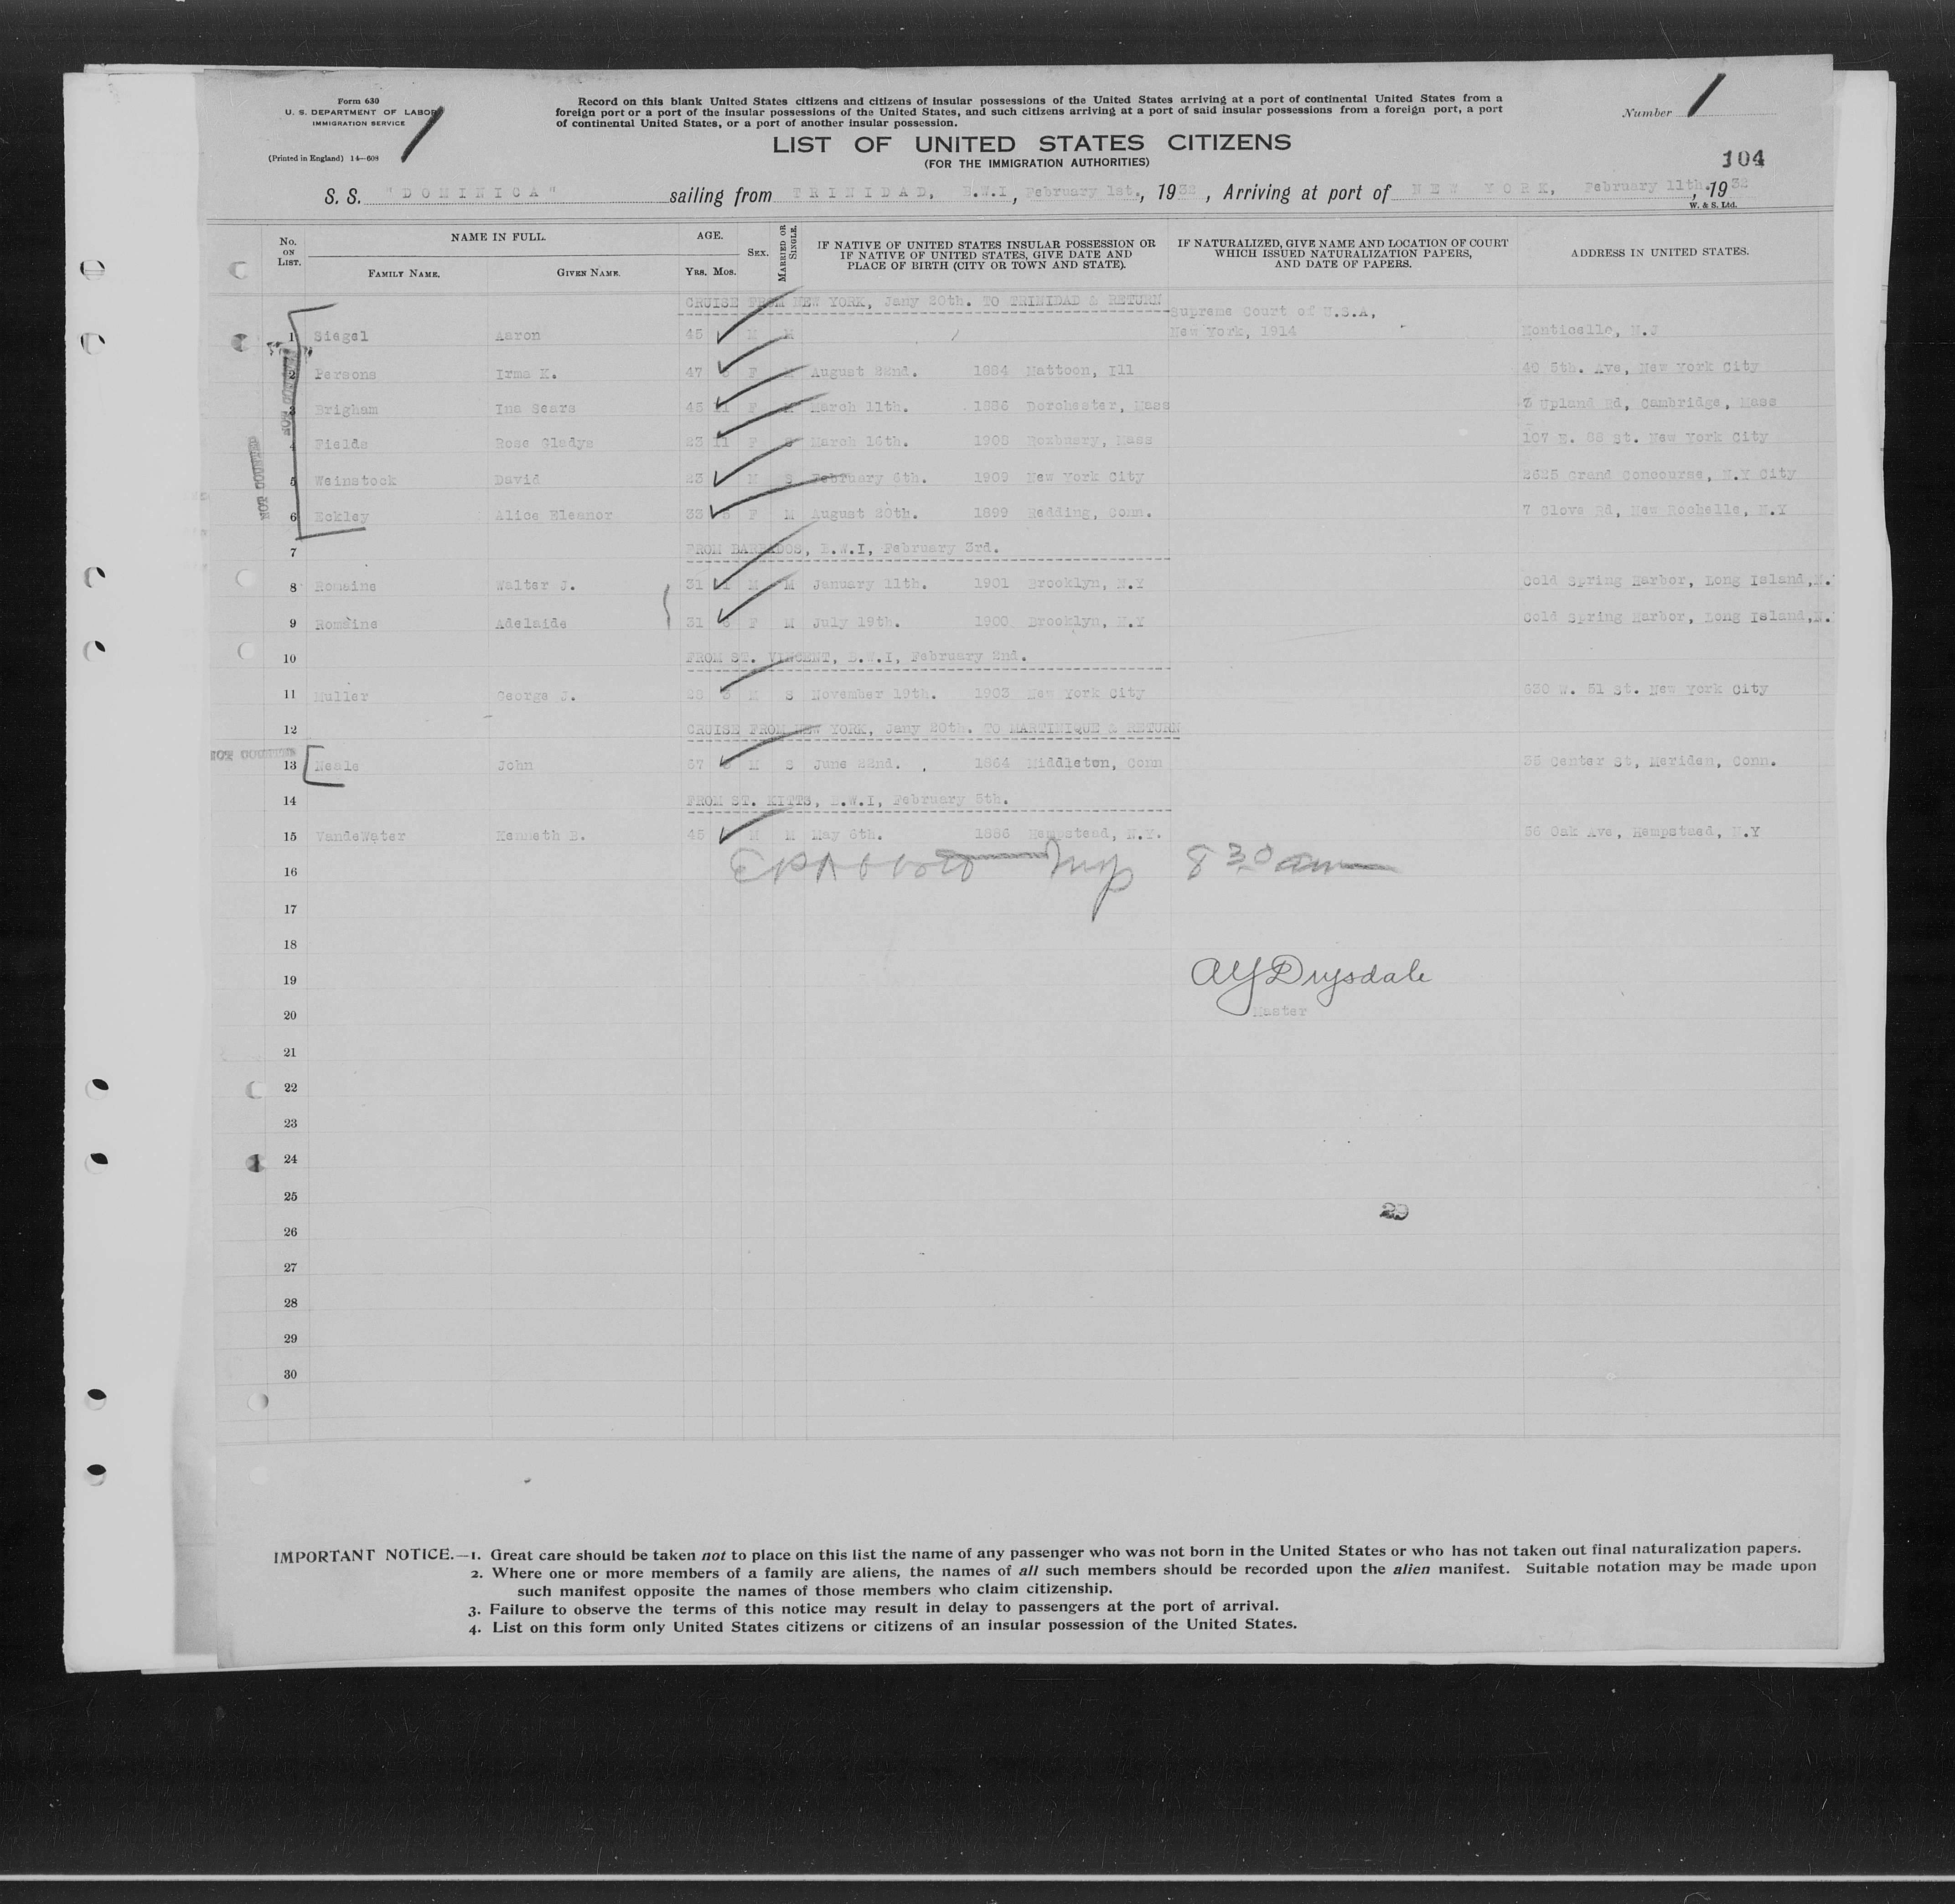 Form 630
U. S. DEPARTMENT OF LABOR
IMMIGRATION SERVICE
(Printed in England) 14—608
Record on this blank United States citizens and citizens of insular possessions of the United States arriving at a port of continental United States from a
foreign port or a port of the insular possessions of the United States, and such citizens arriving at a port of said insular possessions from a foreign port, a port
of continental United States, or a port of another insular possession.
Number 1
LIST OF UNITED STATES CITIZENS
(FOR THE IMMIGRATION AUTHORITIES)
104
S. S. "DOMINICA" sailing from TRINIDAD, B.W.I, February 1st., 1932, Arriving at port of NEW YORK, February 11th., 1932
W. & S. Ltd.
No. ON LIST. NAME IN FULL. FAMILY NAME. GIVEN NAME. AGE. YRS. MOS. SEX. MARRIED OR SINGLE. IF NATIVE OF UNITED STATES INSULAR POSSESSION OR IF NATIVE OF UNITED STATES, GIVE DATE AND PLACE OF BIRTH (CITY OR TOWN AND STATE). IF NATURALIZED, GIVE NAME AND LOCATION OF COURT WHICH ISSUED NATURALIZATION PAPERS, AND DATE OF PAPERS. ADDRESS IN UNITED STATES.
CRUISE FROM NEW YORK, Jany 20th. TO TRINIDAD & RETURN
Supreme Court of U.S.A,
1 Siegel Aaron 45 M M New York, 1914 Monticello, N.J
2 Persons Irma K. 47 F M August 22nd. 1884 Mattoon, Ill 40 5th. Ave, New York City
3 Brigham Ina Sears 45 11 F M March 11th. 1886 Dorchester, Mass 3 Upland Rd, Cambridge, Mass
4 Fields Rose Gladys 23 11 F S March 16th. 1908 Roxbuary, Mass 107 E. 88 St. New York City
5 Weinstock David 23 M S February 6th. 1909 New York City 2625 Grand Concourse, N.Y City
6 Eckley Alice Eleanor 33 F M August 20th. 1899 Redding, Conn. 7 Clove Rd, New Rochelle, N.Y
NOT COUNTED
NOT COUNTED
7 FROM BARBADOS, B.W.I, February 3rd.
8 Romaine Walter J. 31 M M January 11th. 1901 Brooklyn, N.Y Cold Spring Harbor, Long Island, N.
9 Romaine Adelaide 31 6 F M July 19th. 1900 Brooklyn, N.Y Cold Spring Harbor, Long Island, N.
10 FROM ST. VINCENT, B.W.I, February 2nd.
11 Muller George J. 28 3 M S November 19th. 1903 New York City 530 W. 51 St. New York City
12 CRUISE FROM NEW YORK, Jany 20th. TO MARTINIQUE & RETURN
NOT COUNTED
13 Neale John 67 M S June 22nd. 1864 Middleton, Conn 35 Center St, Meriden, Conn.
14 FROM ST. KITTS, B.W.I, February 5th.
15 VandeWater Kenneth B. 45 M M May 6th. 1886 Hempstead, N.Y. 56 Oak Ave, Hempstead, N.Y
16 8 30 am
17
18
19 AY Drysdale
20 Master
21
22
23
24
25
29
26
27
28
29
30
IMPORTANT NOTICE.—1. Great care should be taken not to place on this list the name of any passenger who was not born in the United States or who has not taken out final naturalization papers.
2. Where one or more members of a family are aliens, the names of all such members should be recorded upon the alien manifest. Suitable notation may be made upon
such manifest opposite the names of those members who claim citizenship.
3. Failure to observe the terms of this notice may result in delay to passengers at the port of arrival.
4. List on this form only United States citizens or citizens of an insular possession of the United States.